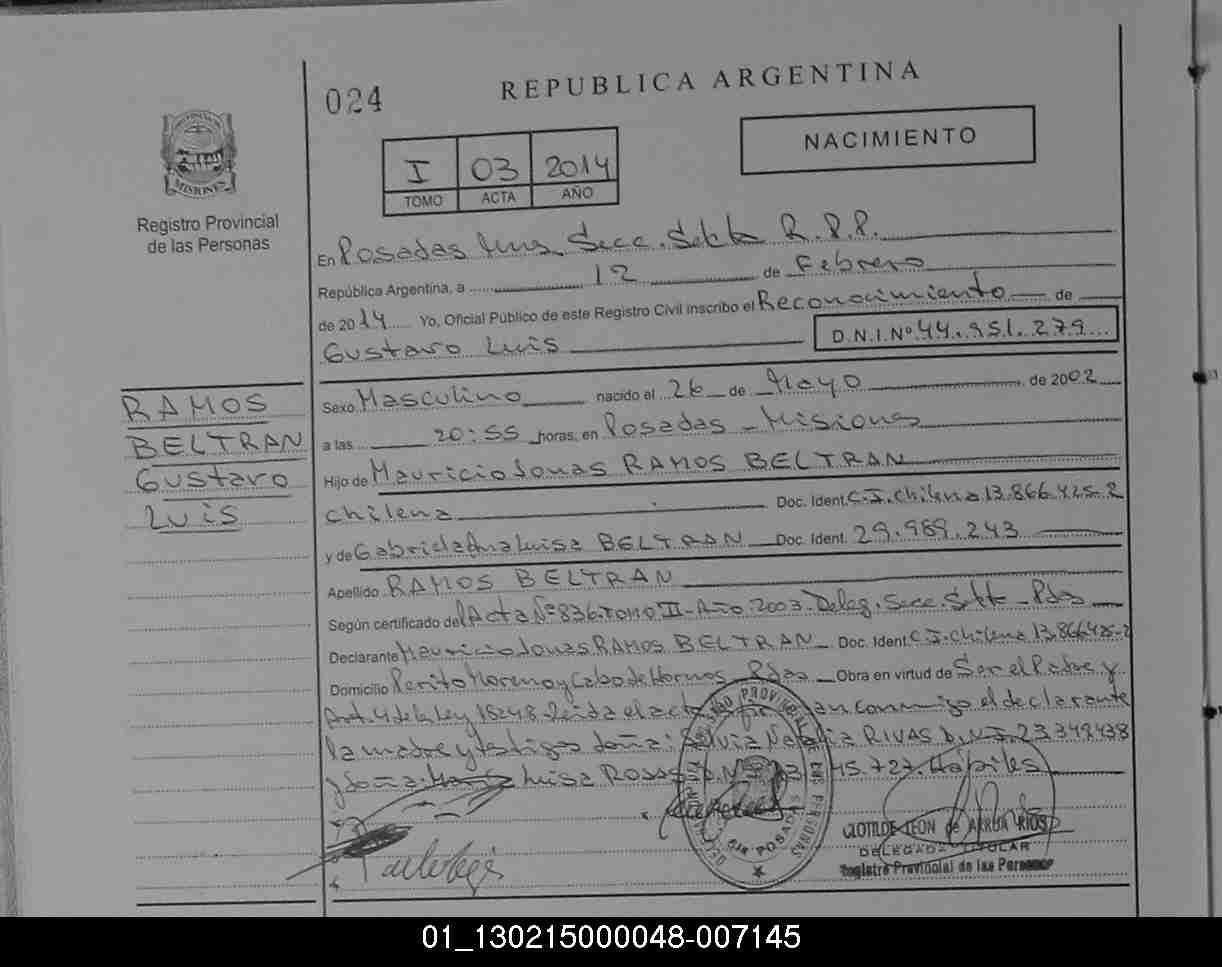 024
REPUBLICA ARGENTINA
NACIMIENTO
I 03 2014
TOMO ACTA AÑO
MISIONES
Registro Provincial
de las Personas
En Posadas Mnes. Secc. Sexta R.P.P.
República Argentina, a 12 de Febrero
de 2014 Yo, Oficial Público de este Registro Civil inscribo el Reconocimiento de
Gustavo Luis D.N.I.Nº 44.951.279
RAMOS
BELTRAN
Gustavo
Luis
Sexo Masculino nacido el 26 de Mayo de 2002
a las 20:55 horas, en Posadas - Misiones
Hijo de Mauricio Jonas RAMOS BELTRAN
chilena Doc. Ident. C.I. Chilena 13.866.425-2
y de Gabriela Ana Luisa BELTRAN Doc. Ident. 29.989.243
Apellido RAMOS BELTRAN
Según certificado del Acta Nº 836-Tomo II-Año:2003-Deleg. Secc. Sexta - Pdas
Declarante Mauricio Jonas RAMOS BELTRAN Doc. Ident. C.I. Chilena 13.866.425-2
Domicilio Perito Moreno y Cabo de Hornos - Pdas Obra en virtud de Ser el Padre y
Art. 4 de la Ley 18248. Leida el acta firman conmigo el declarante
la madre y testigos doña: Silvia Natalia RIVAS D.N.I. 23.349.438
y doña Luisa ROSAS D.N. 45.727. Hábiles
CLOTILDE LEON de ARRUA RIOS
DELEGADA TITULAR
Registro Provincial de las Personas
01_130215000048-007145